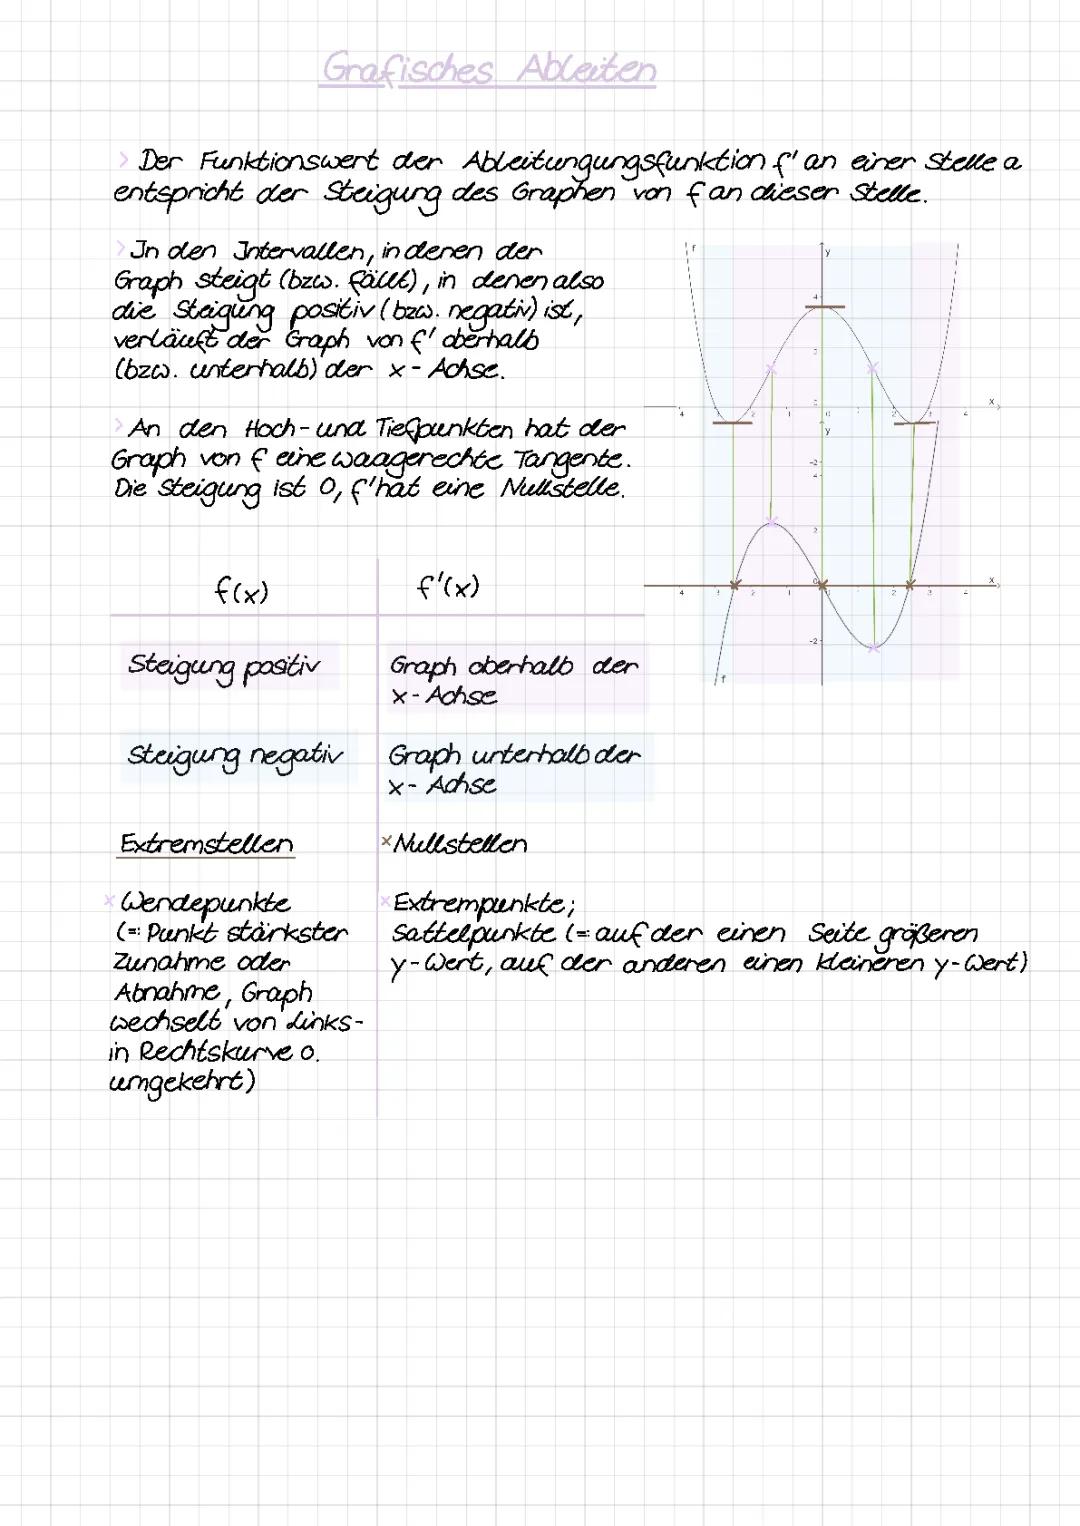 Grafisches Ableiten
> Der Funktionswert der Ableitungungsfunktion f' an einer Stelle a
entspricht der Steigung des Graphen von f an dieser Stelle.
> In den Intervallen, in denen der
Graph steigt (bzw. fällt), in denen also
die Steigung positiv (bzw. negativ) ist,
verläuft der Graph von f' oberhalb
(bzw. unterhalb) der x-Achse.
> An den Hoch- und Tiefpunkten hat der
Graph von f eine waagerechte Tangente.
Die Steigung ist 0, f' hat eine Nullstelle.
f(x) f'(x)
Steigung positiv
Graph oberhalb der
x-Achse
Steigung negativ
Graph unterhalb der
x-Achse
Extremstellen
× Nullstellen
× Wendepunkte
(= Punkt stärkster
Zunahme oder
Abnahme, Graph
wechselt von Links-
in Rechtskurve o.
umgekehrt)
× Extrempunkte;
Sattelpunkte (= auf der einen Seite größeren
y-Wert, auf der anderen einen kleineren y-Wert)
f
y
x
y
x
-2
2
-2
f